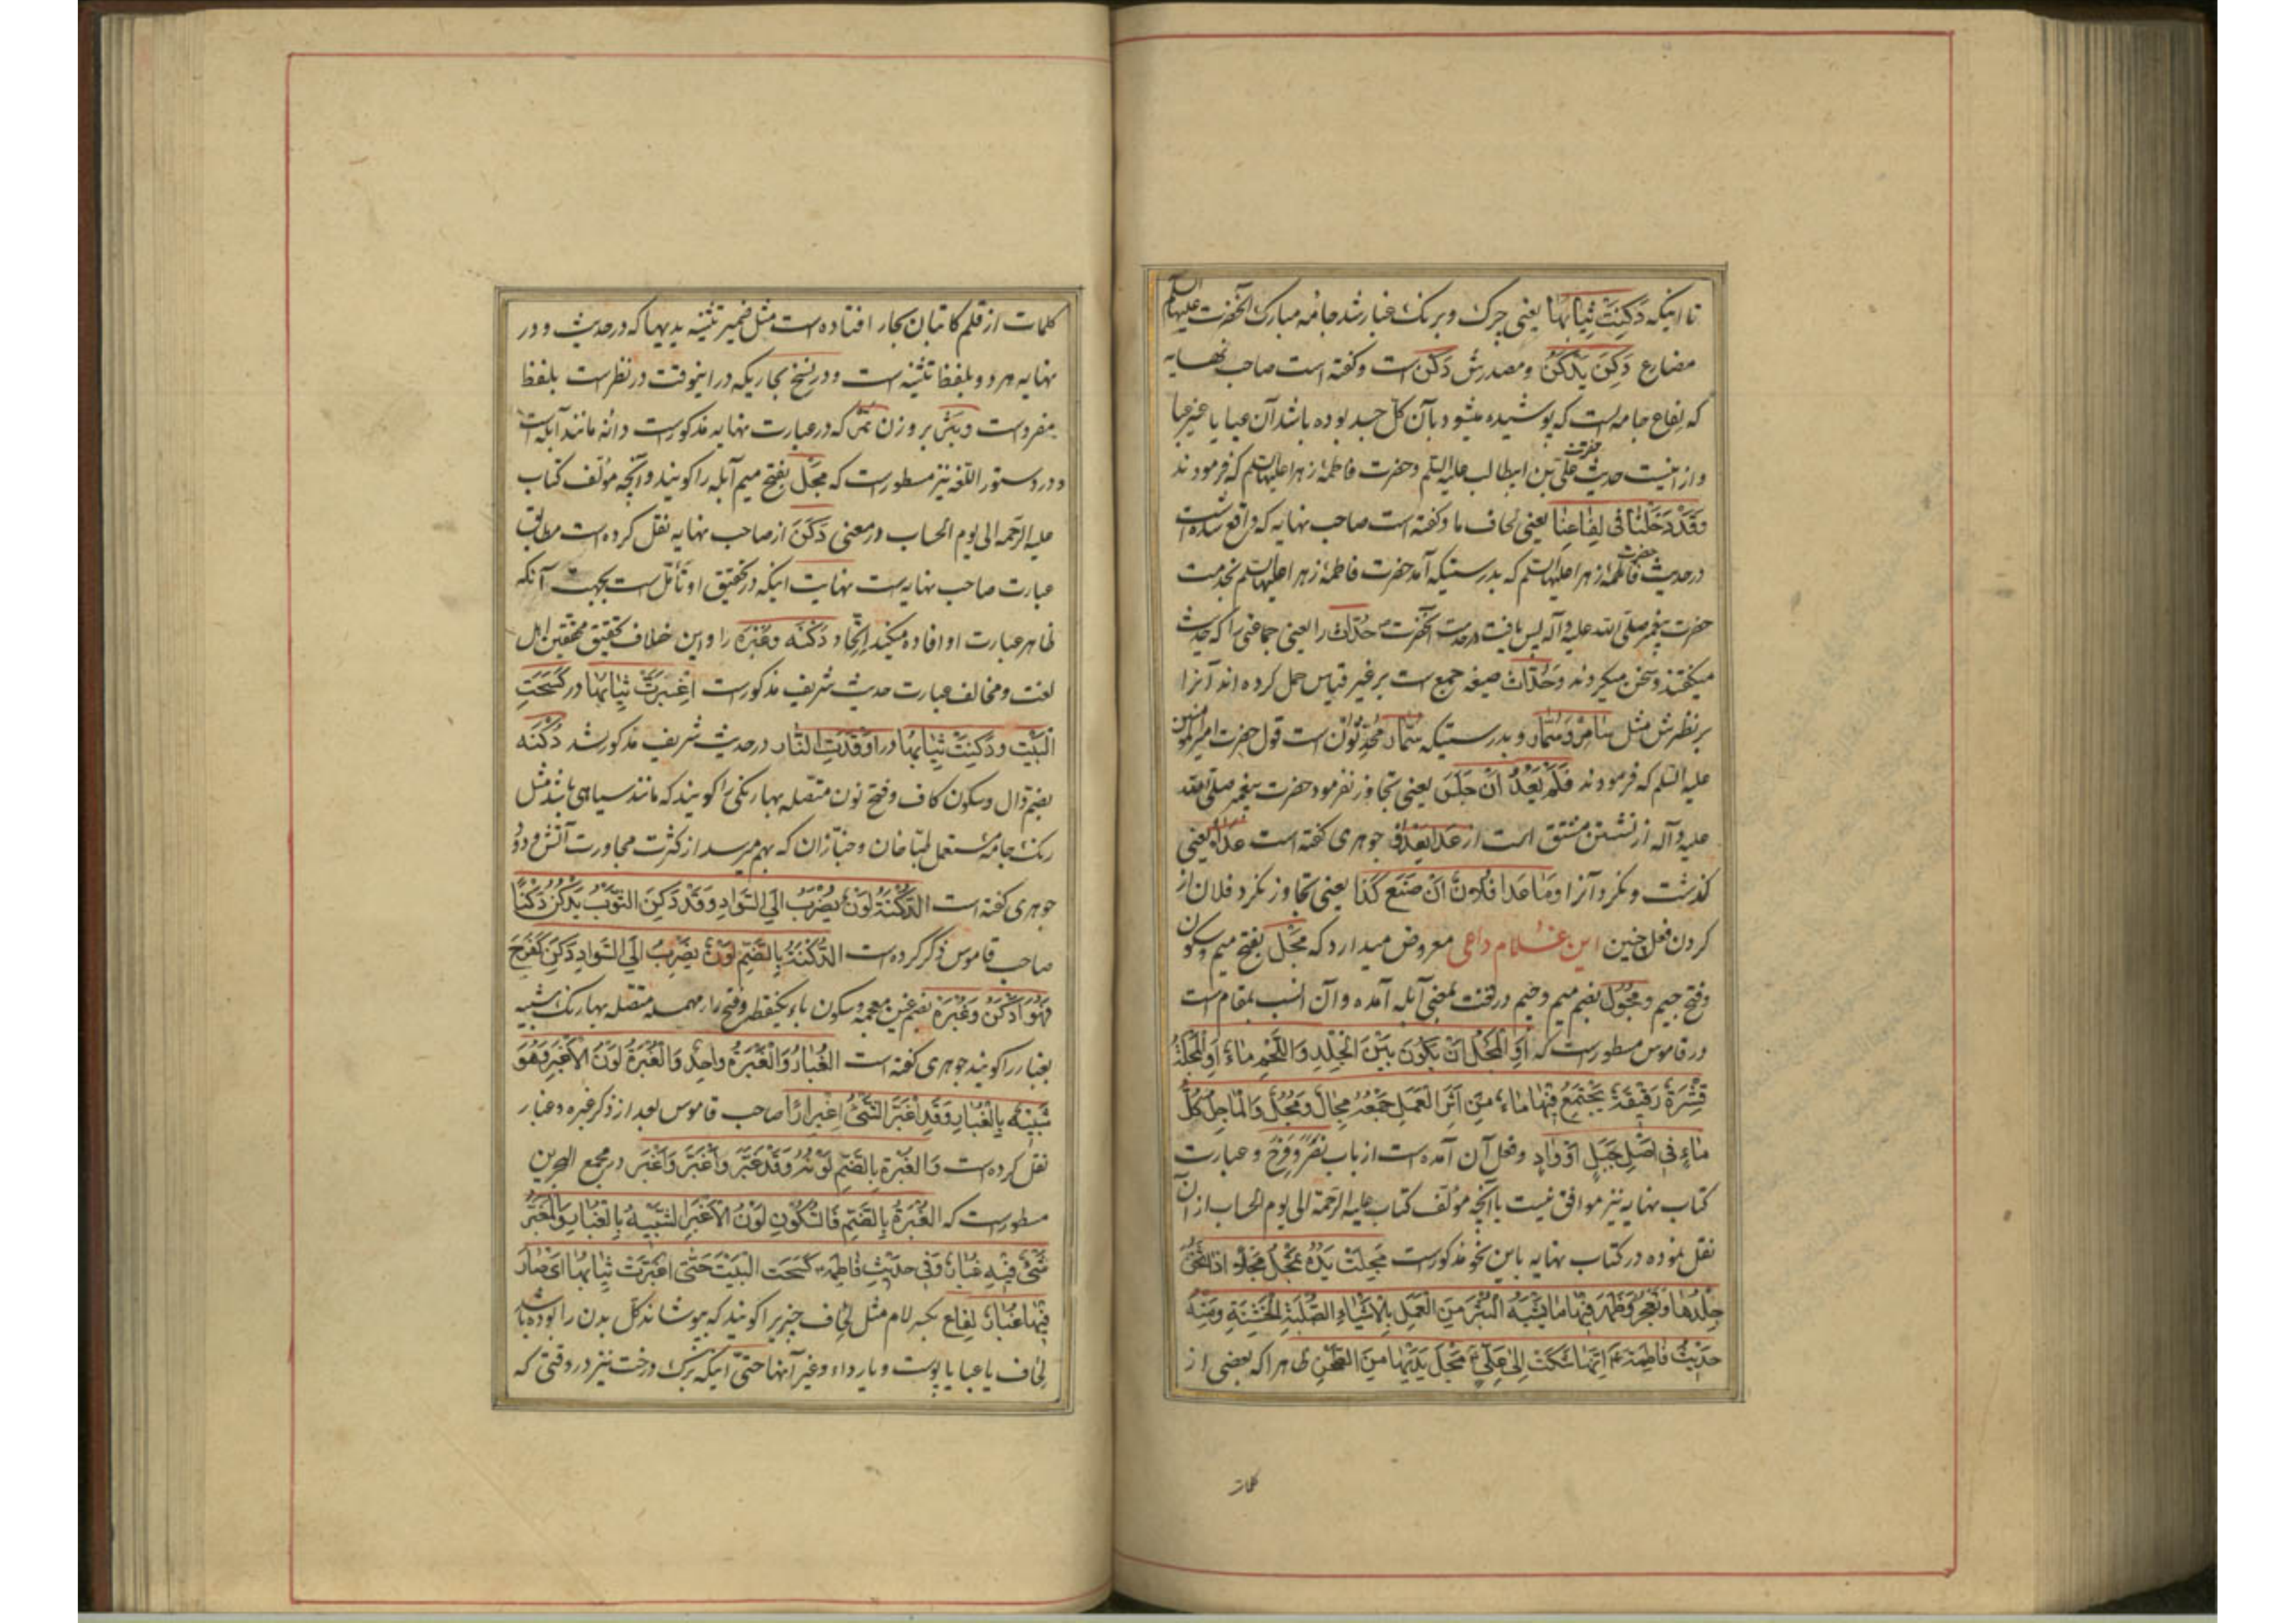 تا اینکه دَکِنَتْ ثِیَابُهَا یعنی چرک و برنک غبار شد جامه مبارک آنحضرت علیها السلم
مضارع دَکِنَ یَدْکَنُ و مصدرش دَکَنٌ است و کفته است صاحب نهایه
که لفاع جامه ایست که پوشیده میشود بآن کل جسد بوده باشد آن عبا یا غیر عبا
و از اینست حدیث حضرت علی بن ابیطالب علیه السلم و حضرت فاطمهٔ زهرا علیها السلم که فرمودند
وَقَدْ دَخَلْنَا فی لِفَاعِنَا یعنی لحاف ما و کفته است صاحب نهایه که واقع شده است
در حدیث حضرت فاطمهٔ زهرا علیها السلم که بدرستیکه آمد حضرت فاطمهٔ زهرا علیها السلم بخدمت
حضرت پیغمبر صلی الله علیه و آله پس یافت در خدمت آنحضرت حُدّاث را یعنی جماعتی را که حدیث
میکفتند و سخن میکردند و حُدّاث صیغه جمع است بر غیر قیاس حمل کرده اند آنرا
بر نظیرش مثل سَامِر و سُمّار و بدرستیکه سُمّار مُحَدِّثُونَ است قول حضرت امیر المؤمنین
علیه السلم که فرمودند فَلَمْ یَعْدُ اَنْ جَلَسَ یعنی تجاوز نفرمود حضرت پیغمبر صلی الله
علیه و آله از نشستن مشتق است از عَدَا یَعْدُو جوهری کفته است عَدَاهُ یعنی
کذشت و نکرد آنرا وَمَا عَدَا فُلَانٌ اَنْ صَنَعَ کَذَا یعنی تجاوز نکرد فلان از
کردن فعل چنین این غلام داعی معروض میدارد که مَجْل بفتح میم و سکون
و فتح جیم و مُجُول بضم میم و جیم در لغت بمعنی آبله آمده و آن انسب بمقام است
و در قاموس مسطور است که اَوِ الْمَجْلُ اَنْ یَکُونَ بَیْنَ الْجِلْدِ وَ اللَّحْمِ مَاءٌ اَوِ الْمَجْلَةُ
قِشْرَةٌ رَقِیقَةٌ یَجْتَمِعُ فِیهَا مَاءٌ مِنْ اَثَرِ الْعَمَلِ جَمْعُهُ مِجَالٌ وَ مَجْلٌ وَ الْمَاجِلُ کُلُّ
مَاءٍ فی اَصْلِ جَبَلٍ اَوْ وَادٍ و فعل آن آمده است از باب نَصَرَ و فَرِحَ و عبارت
کتاب نهایه نیز موافق نیست با آنچه مؤلف کتاب علیه الرحمة الی یوم الحساب از آن
نقل نموده در کتاب نهایه باین نحو مذکور است مَجِلَتْ یَدُهُ تَمْجَلُ مَجَلًا اِذَا ثَخُنَ
جِلْدُهَا وَ تَعَجَّرَ وَ ظَهَرَ فِیهَا مَا یُشْبِهُ الْبَثْرَ مِنَ الْعَمَلِ بِالْاَشْیَاءِ الصُّلْبَةِ الْخَشِنَةِ وَ مِنْهُ
حَدِیثُ فَاطِمَةَ ع اَنَّهَا شَکَتْ اِلٰی عَلِیٍّ ع مَجْلَ یَدَیْهَا مِنَ الطَّحْنِ ظاهرا که بعضی از
کلمات
کلمات از قلم کاتبان بحار افتاده است مثل ضمیر تثنیه یدیها که در حدیث و در
نهایه هر دو بلفظ تثنیه است و در نسخ بحاریکه در اینوقت در نظر است بلفظ
مفرد است و بَثْر بر وزن تمر که در عبارت نهایه مذکور است دانه مانند آبله است
و در دستور اللغه نیز مسطور است که مَجْل بفتح میم آبله را کویند و آنچه مؤلف کتاب
علیه الرحمه الی یوم الحساب در معنی دَکَنَ از صاحب نهایه نقل کرده است مطابق
عبارت صاحب نهایه است نهایت اینکه در تحقیق او تأمل است بجهت آنکه
ظاهر عبارت او افاده میکند اتحاد دُکْنَه و غُبْرَه را و این خلاف تحقیق محققین اهل
لغت و مخالف عبارت حدیث شریف مذکور است اغْبَرَّتْ ثِیَابُهَا در کَسَحَتِ
الْبَیْتَ و دَکِنَتْ ثِیَابُهَا در اَوْقَدَتِ النَّار در حدیث شریف مذکور شد دُکْنَه
بضم دال و سکون کاف و فتح نون متصله بها رنکی را کویند که مانند سیاهی باشد مثل
رنک جامهٔ مستعمل طباخان و خبازان که بهم میرسد از کثرت مجاورت آتش و دود
جوهری کفته است الدُّکْنَةُ لَوْنٌ یَضْرِبُ اِلَی السَّوَادِ وَقَدْ دَکِنَ الثَّوْبُ یَدْکَنُ دَکَنًا
صاحب قاموس ذکر کرده است الدُّکْنَةُ بِالضَّمِّ لَوْنٌ یَضْرِبُ اِلَی السَّوَادِ دَکِنَ کَفَرِحَ
فَهُوَ اَدْکَنُ وَ غُبْرَه بضم غین معجمه و سکون باء یکنقطه و فتح راء مهمله متصله بها رنک شبیه
بغبار را کویند جوهری کفته است الْغُبَارُ وَ الْغَبَرَةُ وَاحِدٌ وَ الْغُبْرَةُ لَوْنُ الْاَغْبَرِ وَ هُوَ
شَبِیهٌ بِالْغُبَارِ وَقَدِ اغْبَرَّ الشَّیْءُ اغْبِرَارًا صاحب قاموس بعد از ذکر غبره و غبار
نقل کرده است وَ الْغُبْرَةُ بِالضَّمِّ لَوْنُهُ وَقَدْ غَبَرَ وَ اغْبَرَّ وَ اَغْبَرَ در مجمع البحرین
مسطور است که الْغُبْرَةُ بِالضَّمِّ فَالسُّکُونِ لَوْنُ الْاَغْبَرِ الشَّبِیهُ بِالْغُبَارِ وَ الْمُغْبَرُّ
شَیْءٌ فِیهِ غُبَارٌ وَفِی حَدِیثِ فَاطِمَةَ ع کَسَحَتِ الْبَیْتَ حَتَّی اغْبَرَّتْ ثِیَابُهَا اَیْ صَارَ
فِیهَا غُبَارٌ لِفَاع بکسر لام مثل لحاف چیزیرا کویند که بپوشاند کل بدن را بوده باشد
لحاف یا عبا یا پوست و یا رداء و غیر آنها حتی اینکه برک درخت نیز در وقتی که